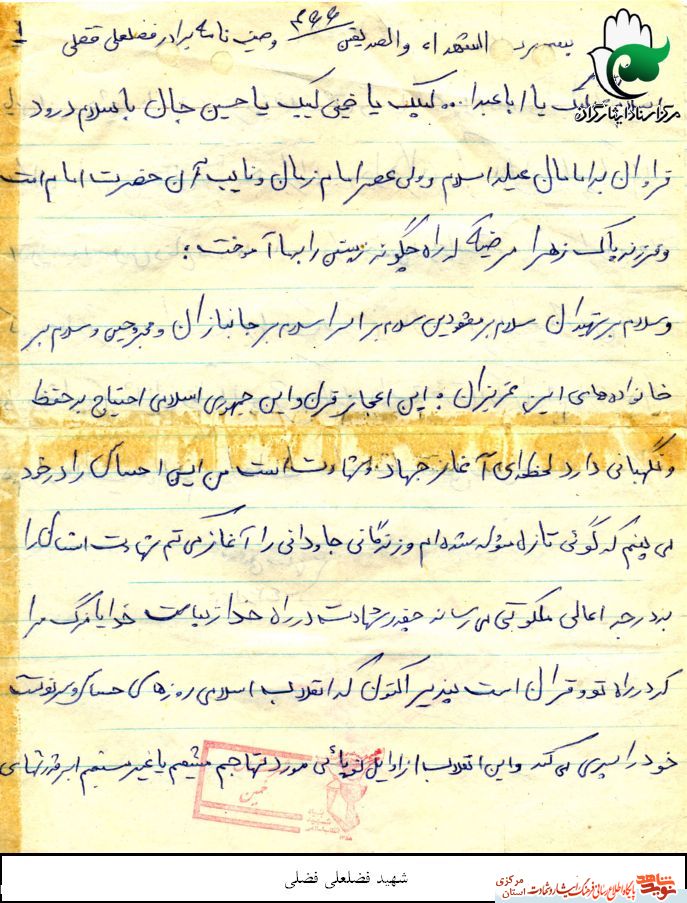 بسم رب الشهداء والصدیقین ۴۶۶ وصیت نامه برادر فضلعلی فضلی ۱
مرکز اسناد ایثارگران
لبیک یا اباعبدا... لبیک یا خمینی لبیک یا حسین جان با سلام درود
فراوان به امامان علیه اسلام و ولی عصر امام زمان و نایب آن حضرت امام امت
و فرزند پاک زهرا مرضیه که راه چگونه زیستن را بما آموخت ؛
وسلام بر شهیدان سلام بر مفقودین سلام بر اسرا سلام بر جانبازان و مجروحین وسلام بر
خانواده های این عزیزان ؛ این اعجاز قرن و این جمهوری اسلامی احتیاج به حفظ
و نگهبانی دارد لحظه‌ای آغاز جهاد و شهادت است من این احساس را در خود
می بینم که گوئی تازه متولد شده ام و زندگانی جاودانی را آغاز می کنم شهادت انسان را
به درجه اعلای ملکوتی می رساند چقدر شهادت در راه خدا زیباست خدایا مرگ مرا
که در راه تو و قرآن است بپذیر اکنون که انقلاب اسلامی روزهای حساس و سرنوشت
خود را سپری می کند و این انقلاب از اوایل نوپائی مورد تهاجم مستقیم یا غیر مستقیم ابرقدرتهای
شهید فضلعلی فضلی
نوید شاهد
پایگاه اطلاع رسانی فرهنگ ایثار و شهادت استان مرکزی